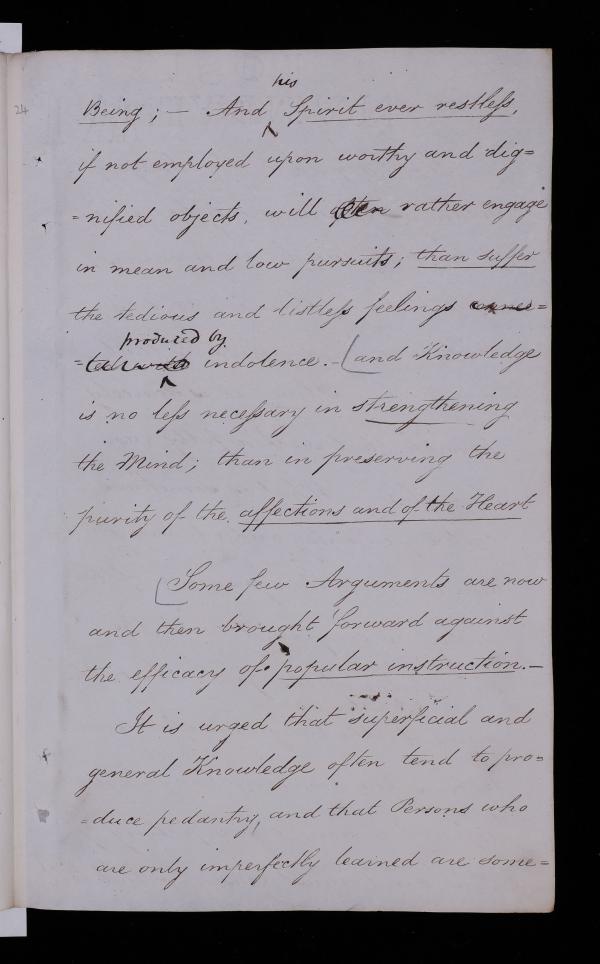 24
his
Being; — And Spirit ever restless,
if not employed upon worthy and dig=
=nified objects, will often rather engage
in mean and low pursuits; than suffer
the tedious and listless feelings connec=
produced by
=ted with indolence. — and Knowledge
is no less necessary in strengthening
the Mind; than in preserving the
purity of the affections and of the Heart
Some few Arguments are now
and then brought forward against
the efficacy of popular instruction. —
It is urged that superficial and
general Knowledge often tend to pro=
=duce pedantry, and that Persons who
are only imperfectly learned are some=